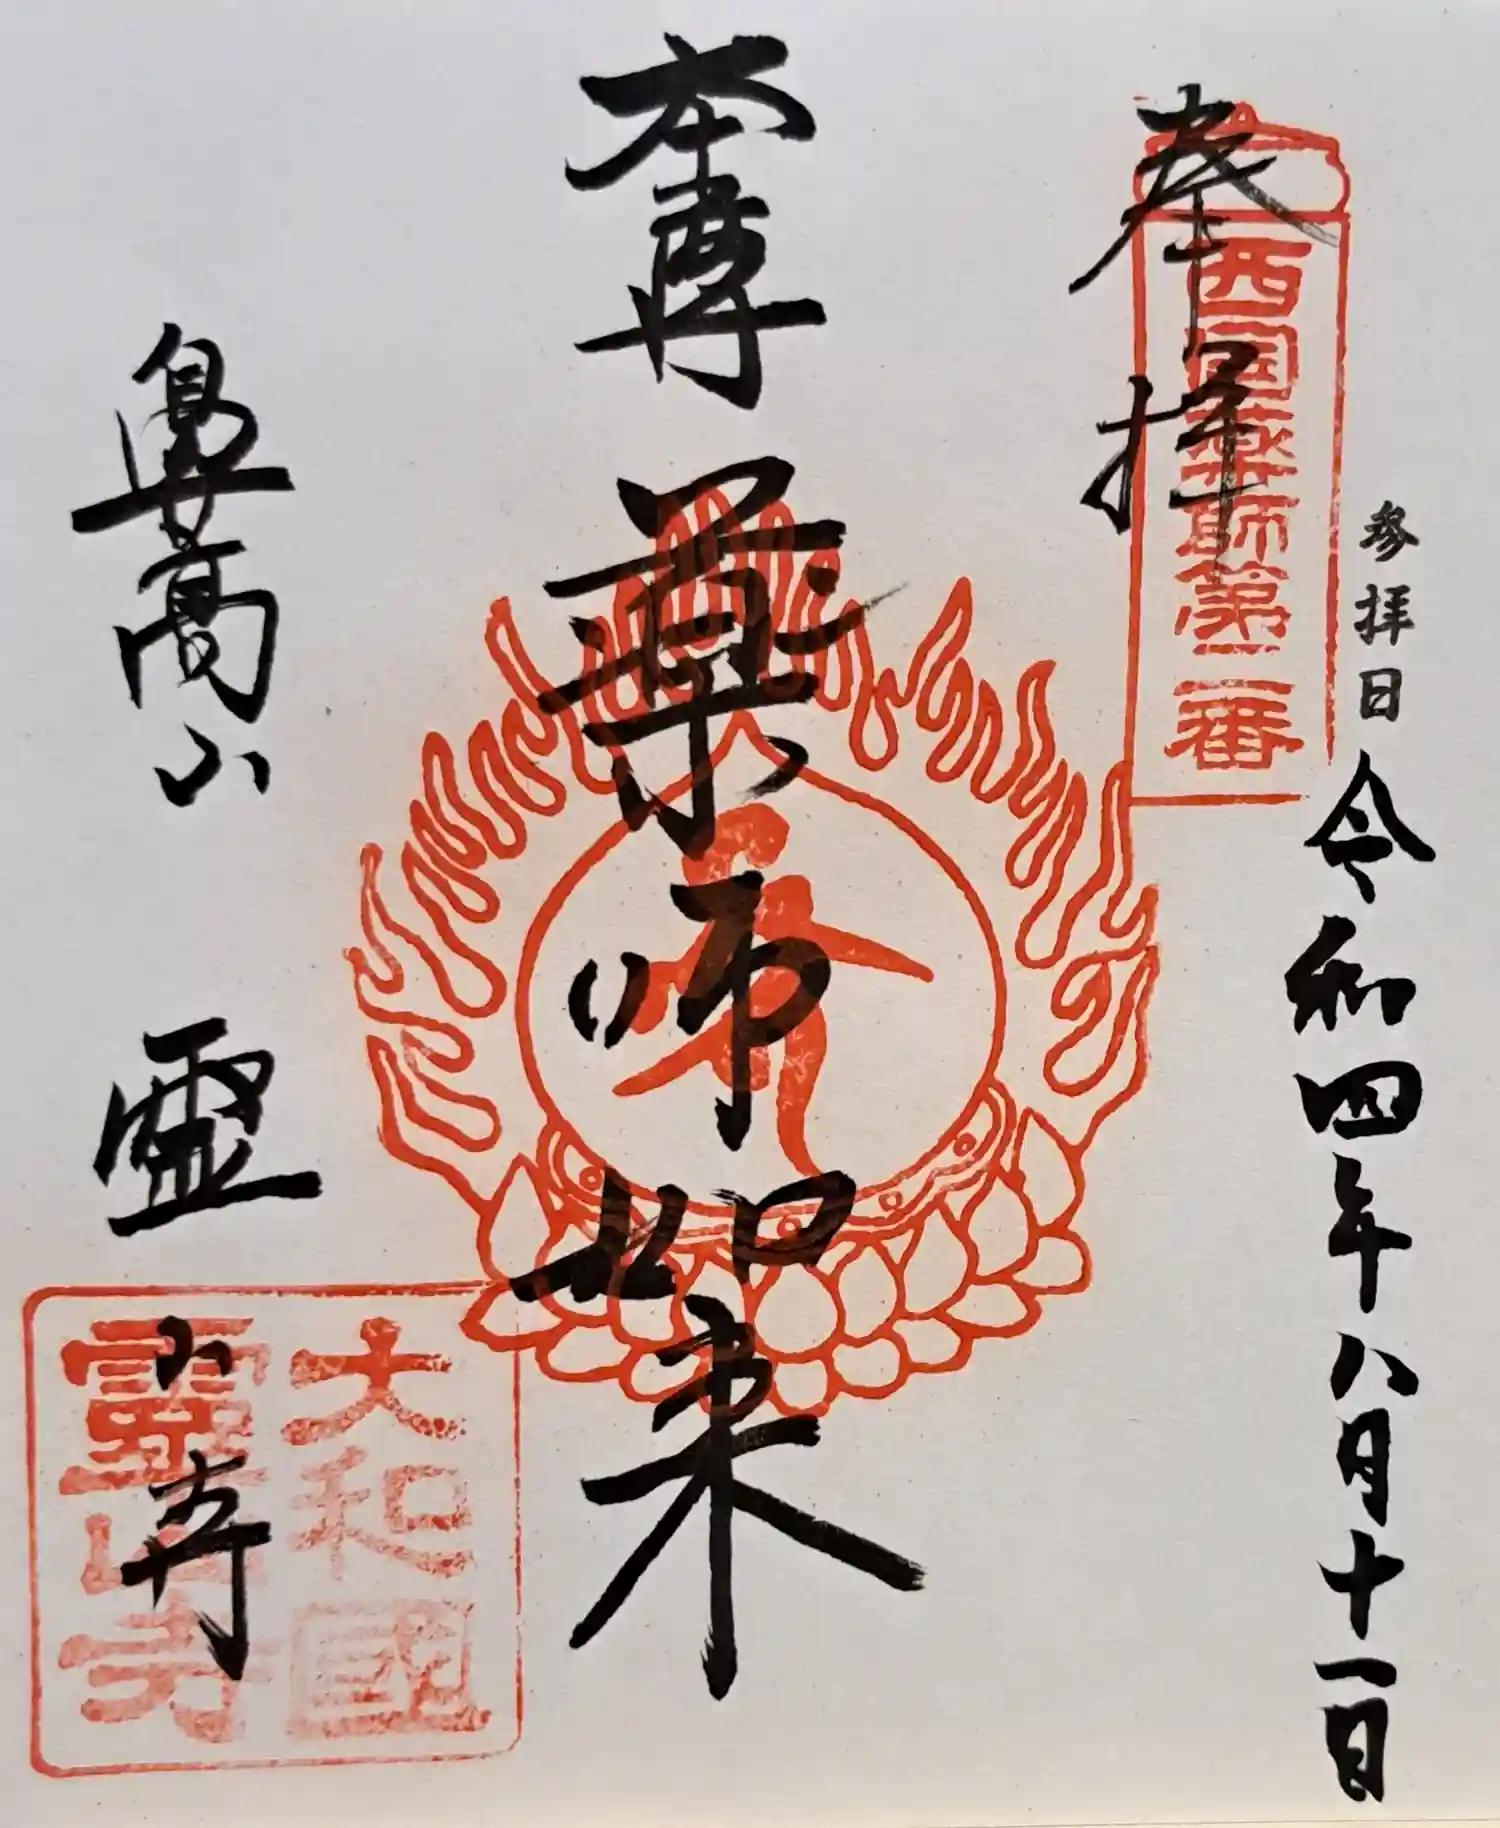 参拝日 令和四年八月十一日
奉拝
西国薬師第二番
本尊 薬師如来
鼻高山 霊山寺
大和國
靈山寺